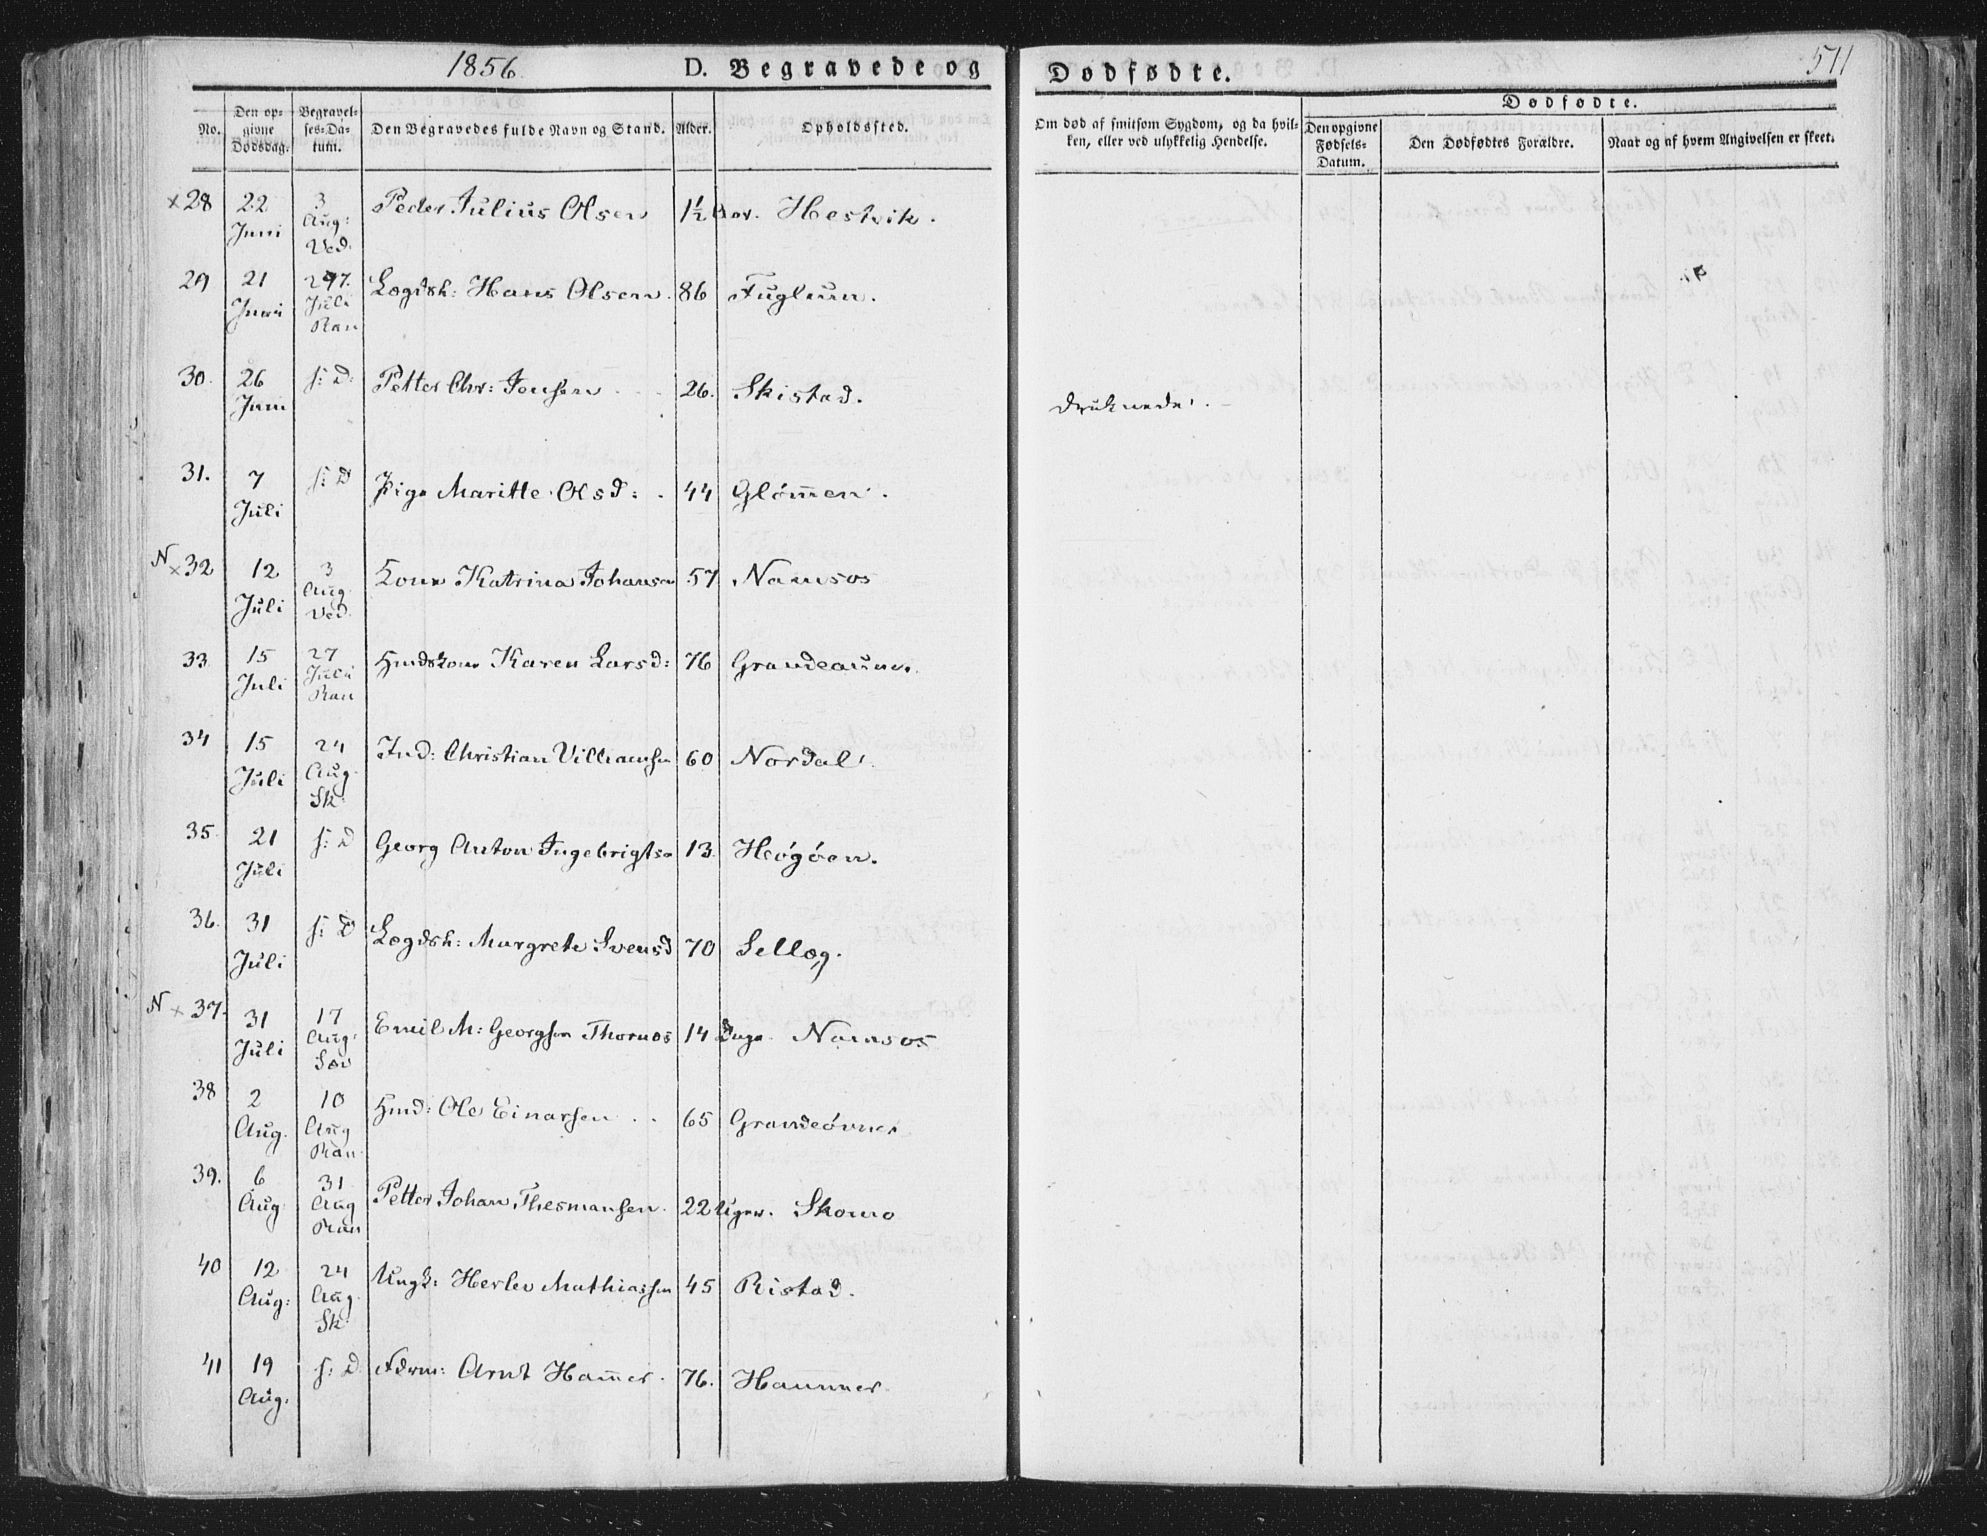 1856.
D. Begravede og
Dødfødte.
571
No.
Den opgivne Dødsdag.
Begravelses-Datum.
Den Begravedes fulde Navn og Stand.
Alder.
Opholdssted.
Om død af smitsom Sygdom, og da hvilken, eller ved ulykkelig Hendelse.
Dødfødte.
Den opgivne Fødsels-Datum.
Den Dødfødtes Forældre.
Naar og af hvem Angivelsen er skeet.
×28 22 Juni 3 Aug: Ved. Peder Julius Olsen 1½ Hestvik.
29 21 Juni Juli Ran Lægdsh: Hans Olsen. 86 Fugleun.
30. 26 Juni f: D: Petter Chr: Jensen 26. Skistad. druknede.
31. 7 Juli f: D Pige Maritte Olsd: 44 Glømen.
N ×32 12 Juli 3 Aug. Ved. Kone Katrina Johansen 57 Namsos
33 15 Juli 27 Juli Ran Hmdskone Karen Larsd: 76 Grandeaune.
34 15 Juli 24 Aug. Sk: Ind: Christian Villiamsen 60 Nordal.
35. 21 Juli f: D Georg Anton Ingebrigts 13. Høgøen.
36. 31 Juli f: D Lægdsh: Margrete Svensd 70 Sellæg.
N × 37. 31 Juli 17 Aug: Sæv Emil M: Georgsen Thornæs 14 Dage. Namsos
38 2 Aug. 10 Aug Ran Hmd: Ole Einarsen 65 Grandeøvne
39. 6 Aug 31 Aug Ran Petter Johan Thesmansen. 22 Uger. Skomo
40 12 Aug: 24 Aug. Sk: Ungk: Herlev Mathiassen 45 Ristad.
41 19 Aug. f: D. Arnt Hamer. 76. Hammer